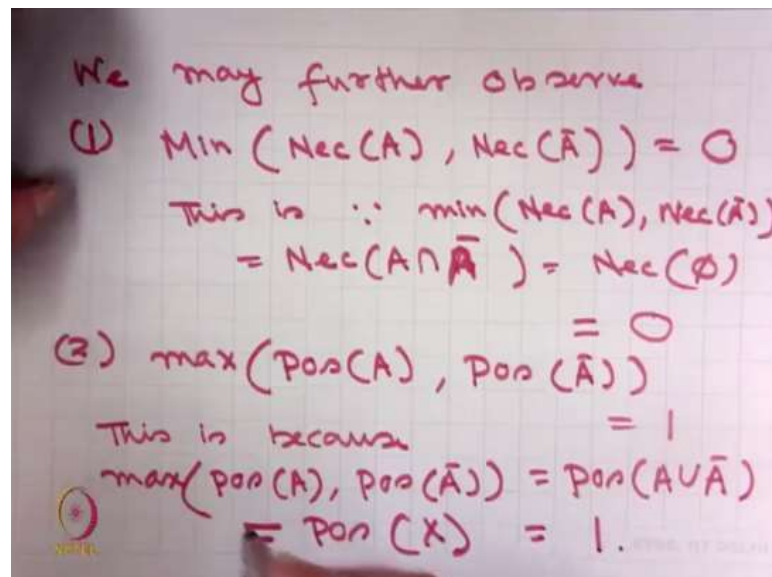 We may further observe
(1) Min (Nec(A), Nec(Ā)) = 0
This is ∵ min(Nec(A), Nec(Ā))
= Nec(A∩Ā) = Nec(φ)
= 0
(2) max(pos(A), pos(Ā))
= 1
This is because
max(pos(A), pos(Ā)) = pos(A∪Ā)
= pos(X) = 1.
NPTEL